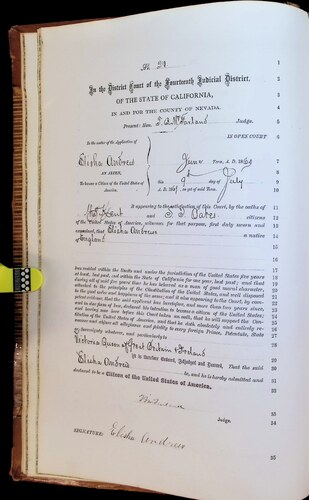 No. 20
In the District Court of the Fourteenth Judicial District,
OF THE STATE OF CALIFORNIA,
IN AND FOR THE COUNTY OF NEVADA.
Present: Hon. Judge.
IN OPEN COURT
In the matter of the Application of
Elisha Andrew
June Term, A. D. 1869
AN ALIEN,
To become a Citizen of the United States of America.
this 9th day of July
A. D. 186 , as yet of said Term.
It appearing to the satisfaction of this Court, by the oaths of
Kent and citizens
of the United States of America, witnesses for that purpose, first duly sworn and
examined, that Elisha Andrew a native
of England
has resided within the limits and under the jurisdiction of the United States five years
at least, last past, and within the State of California for one year, last past; and that
during all of said five years' time he has behaved as a man of good moral character,
attached to the principles of the Constitution of the United States, and well disposed
to the good order and happiness of the same; and it also appearing to the Court, by competent
evidence, that the said applicant has heretofore, and more than two years since,
and in due form of law, declared his intention to become a citizen of the United States;
and having now here before this Court, taken an oath, that he will support the Constitution
of the United States of America, and that he doth absolutely and entirely renounce
and abjure all allegiance and fidelity to every foreign Prince, Potentate, State
or Sovereignty whatever, and particularly to
Victoria Queen of Great Britain & Ireland
It is therefore Ordered, Adjudged and Decreed, That the said
Elisha Andrew is, and he is hereby admitted and
declared to be a Citizen of the United States of America.
Judge.
SIGNATURE: Elisha Andrew
1
2
3
4
5
6
7
8
9
10
11
12
13
14
15
16
17
18
19
20
21
22
23
24
25
26
27
28
29
30
31
32
33
34
35